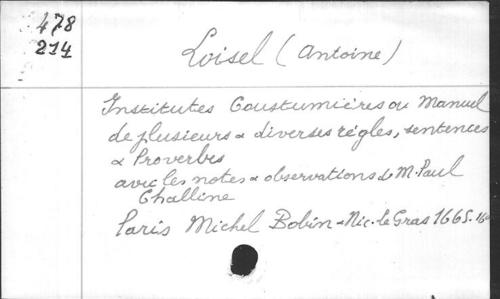 478
214
Loisel (Antoine)
Institutes Coustumières ou Manuel
de plusieurs & diverses règles, sentences
& Proverbes
avec les notes & observations de M. Paul
Challine
Paris Michel Bobin & Nic. le Gras 1665.